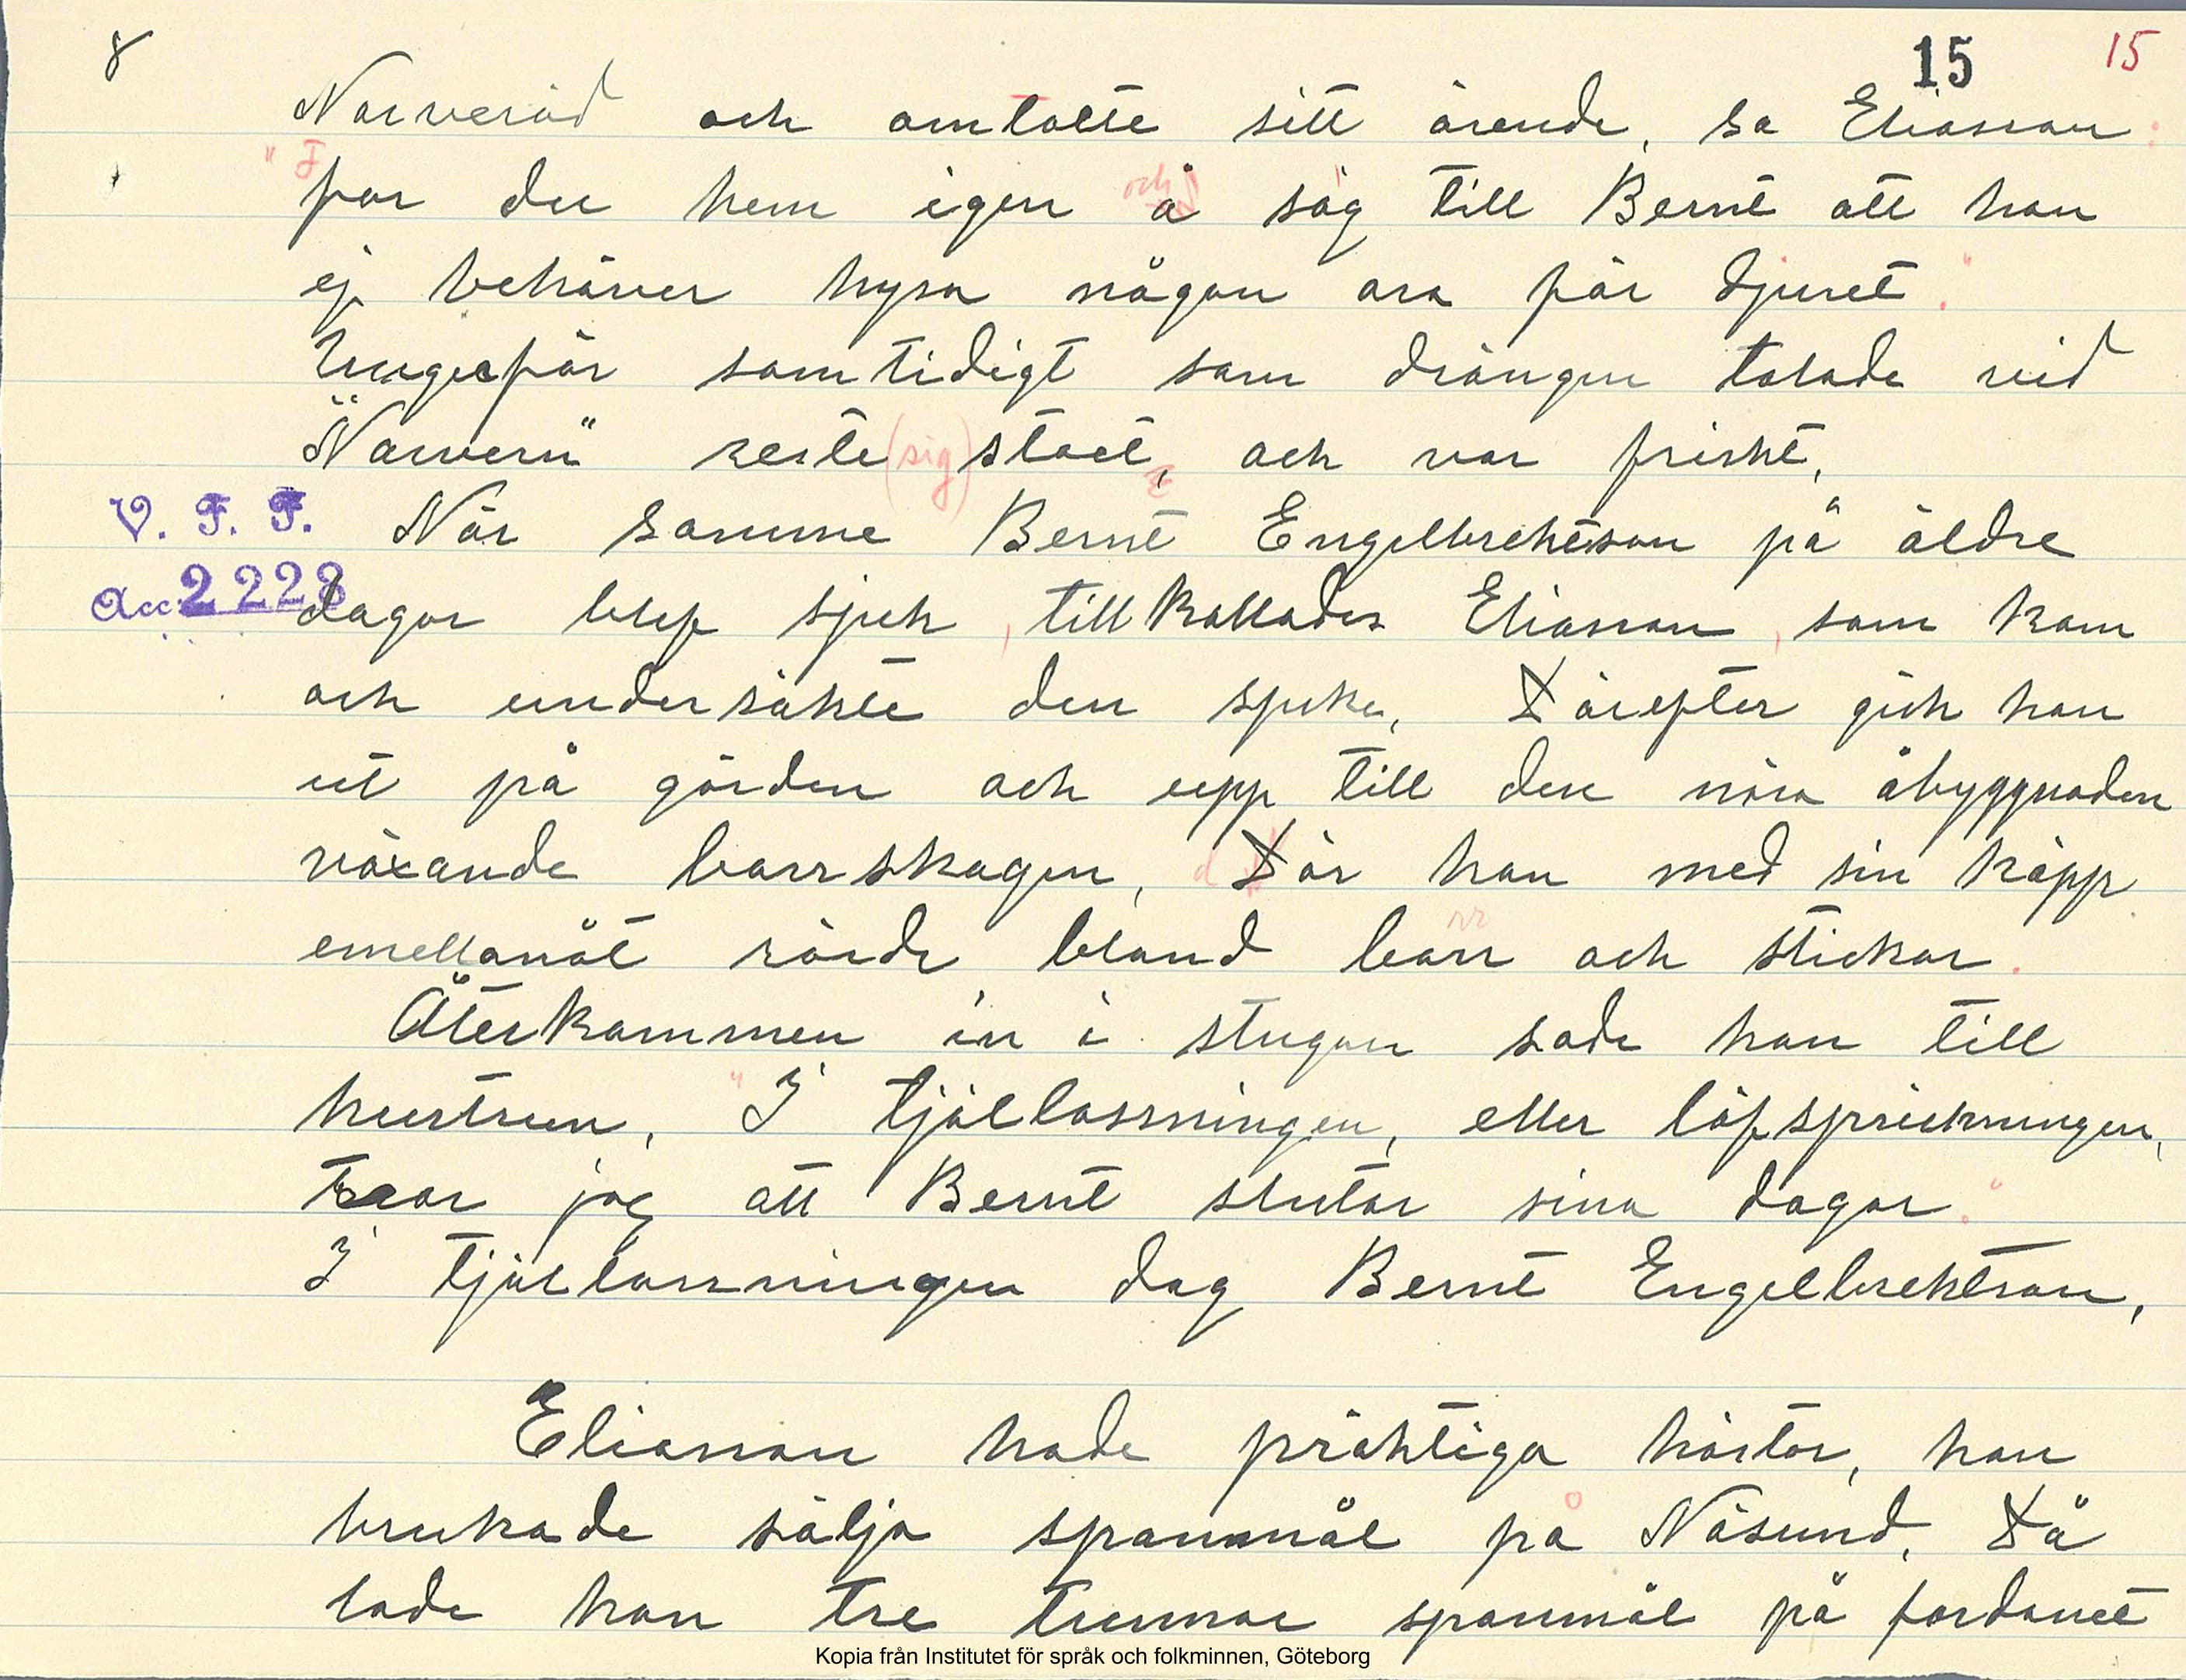 8 15 15
Narveröd och omtalte sitt ärende, sa Eliasson:
"F
far du hem igen och å säg till Bernt att han
ej behöver hysa någon ara för djuret."
Ungefär samtidigt som drängen talade vid
"Narvern" reste (sig) stoet, och var friskt,
V. F. F. När samme Bernt Engelbrektsson på äldre
Acc 2223 dagar blef sjuk, tillkallades Eliasson, som kom
och undersökte den sjuke, Därefter gick han
ut på gården och upp till den nära åbyggnaden
växande barrskogen, d Där han med sin käpp
rr
emellanåt rörde bland barr och stickor.
Återkommen in i stugan sade han till
hustrun, "I tjällossningen, eller löfsprickningen,
tror jag att Bernt slutar sina dagar."
I tjällossningen dog Bernt Engelbrektson,
Eliasson hade präktiga hästar, han
brukade sälja spannmål på Näsund, Då
lade han tre tunnor spannmål på fordonet
Kopia från Institutet för språk och folkminnen, Göteborg